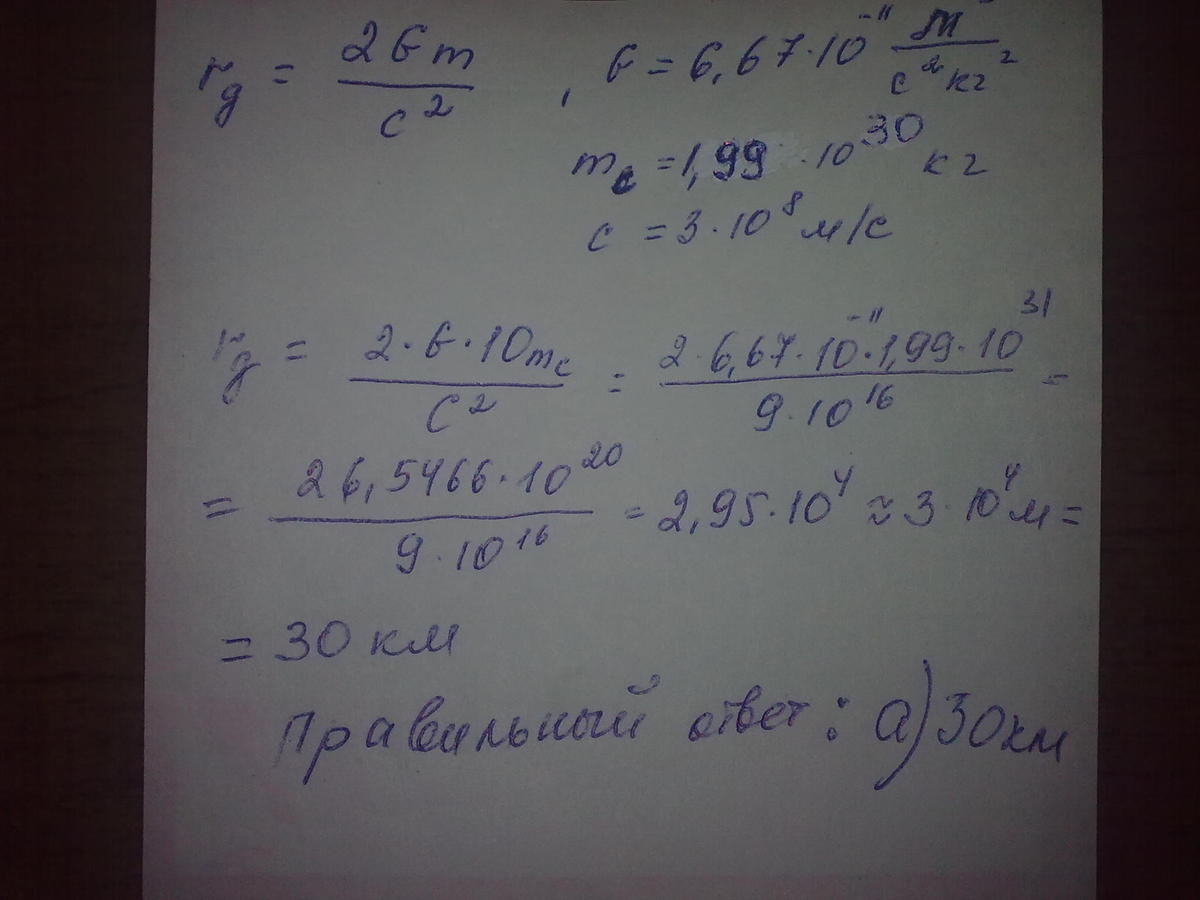 r_g = 2Gm / c² , G = 6,67·10⁻¹¹ m / с² кг²
m_c = 1,99 · 10³⁰ кг
c = 3·10⁸ м/с
r_g = 2·G·10m_c / c² = 2·6,67·10⁻¹¹·1,99·10³¹ / 9·10¹⁶ =
= 26,5466·10²⁰ / 9·10¹⁶ = 2,95·10⁴ ≈ 3·10⁴ м =
= 30 км
Правильный ответ: а) 30 км